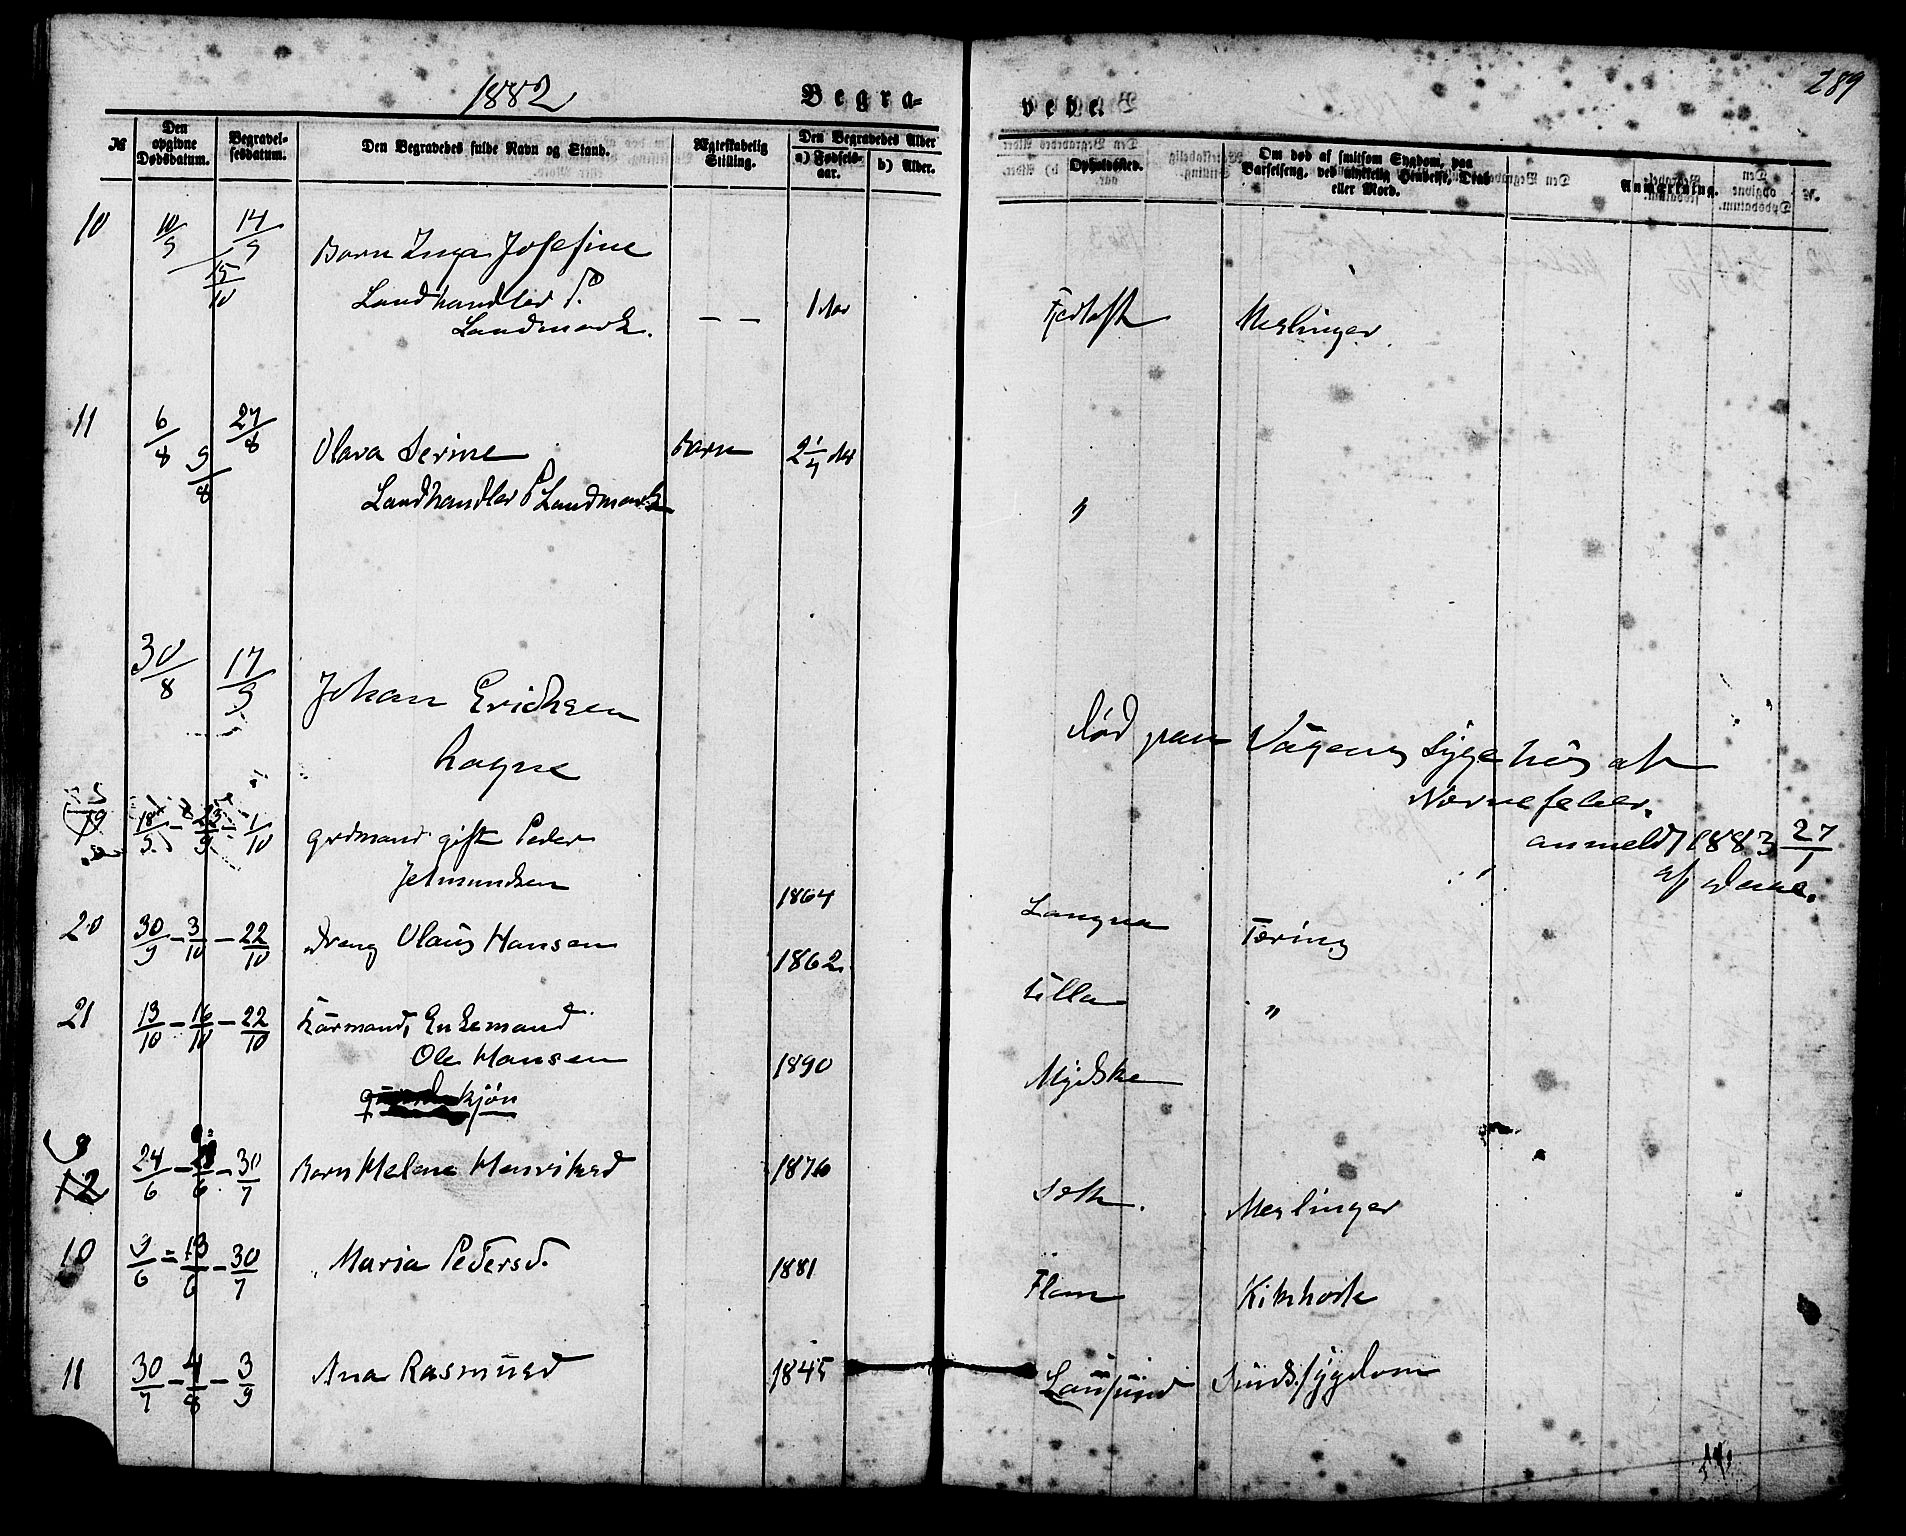 289
1882
Begra-
vede.
№
Den opgivne Dødsdatum.
Begravel-sesdatum.
Den Begravedes fulde Navn og Stand.
Ægteskabelig Stilling.
Den Begravedes Alder
a) Fødsels-aar.
b) Alder.
Opholdssted.
Om død af smitsom Sygdom, paa Barselseng, ved ulykkelig Hændelse, Drab eller Mord.
Anmærkning.
10 10/9 14/9 Barn Inga Josefine
15/10
Landhandler P.
Landmark. — — 1 Aar Fjærtoft Meslinger
11 6/8 27/8 Olava Serine Barn 2 1/4 Aar
9/8
Landhandler P Landmark "
30/8 17/9 Johan Erichsen
Logne
død paa Vågens Sygehús af
Nervefeber.
anmeldt 1883 27/1
19 18/9 - 23/9 - 1/10 Grdmand gift Peder
Jetmundsen 1864 Longva Tæring
20 30/9 - 3/10 - 22/10 Dreng Olaüs Hansen 1862 Ulla "
21 13/10 - 16/10 - 22/10 Kårmand, Enkemand
Ole Hansen 1890 Myklebø
kjøn
9 12 24/6 - 6 - 30/7 Barn Helene Henriksd 1876 Meslinger
10 9/6 = 13/6 - 30/7 Maria Pedersd. 1881 Flem Kikhoste
11 30/7 - 4/8 - 3/9 Ana Rasmüsd 1845 Laüsünd Sindssygdom